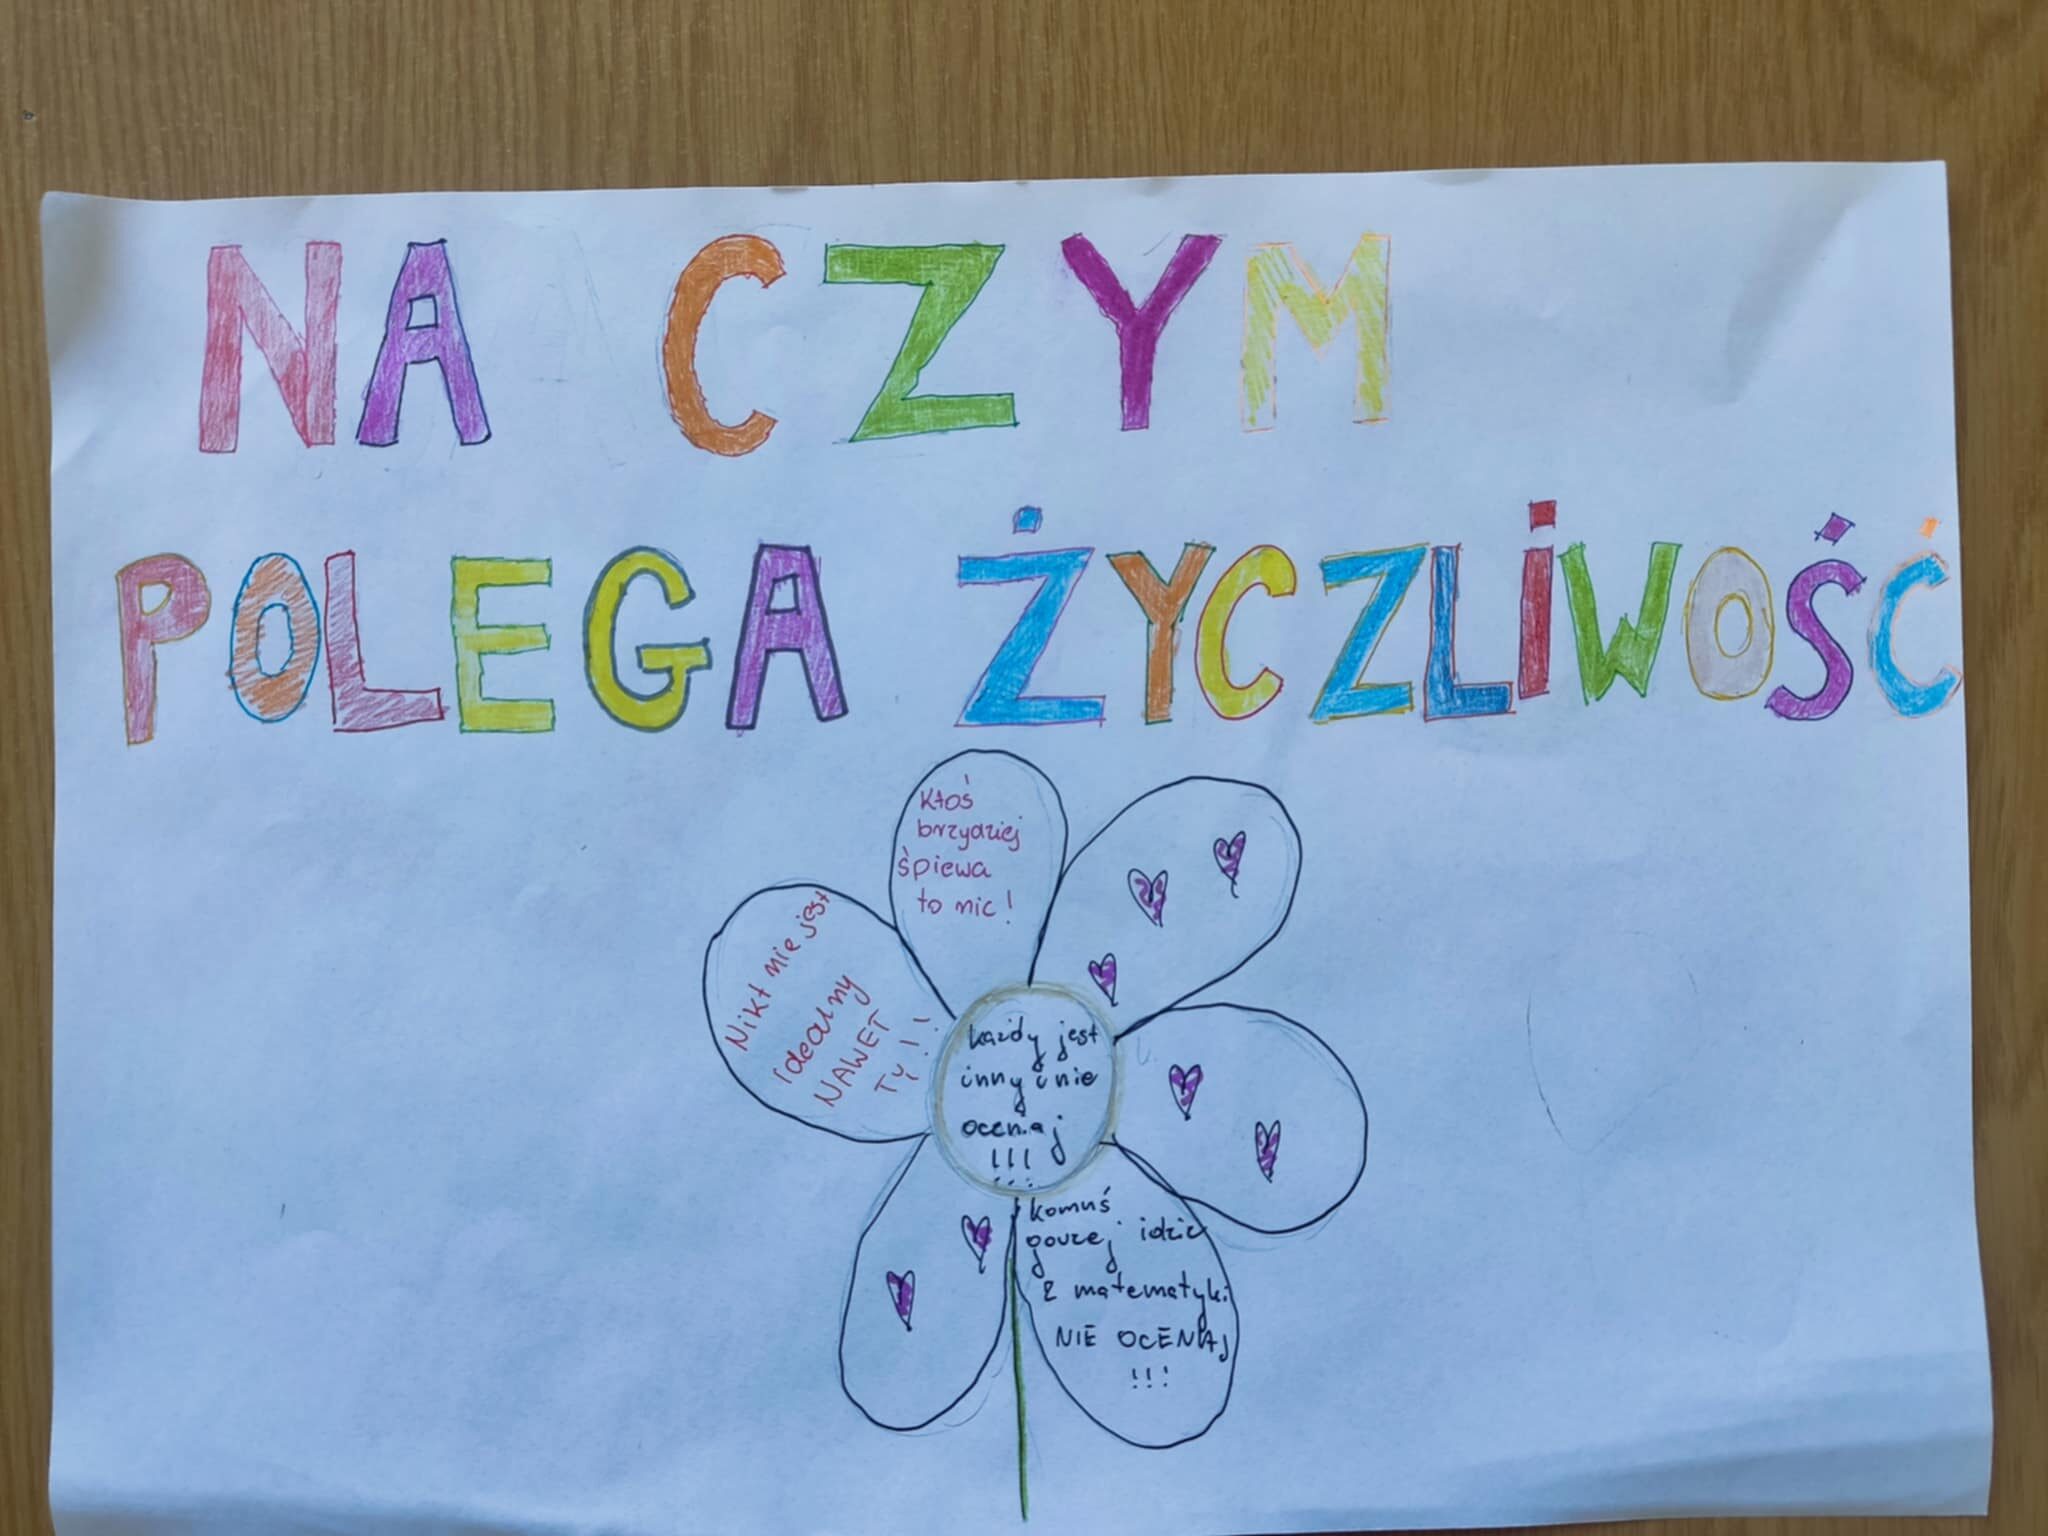 NA CZYM
POLEGA ŻYCZLIWOŚĆ
Ktoś
brzydziej
śpiewa
to nic!
Nikt nie jest
idealny
NAWET
TY!!
każdy jest
inny i nie
oceniaj
!!!
komuś
gorzej idzie
z matematyki
NIE OCENIAJ
!!!